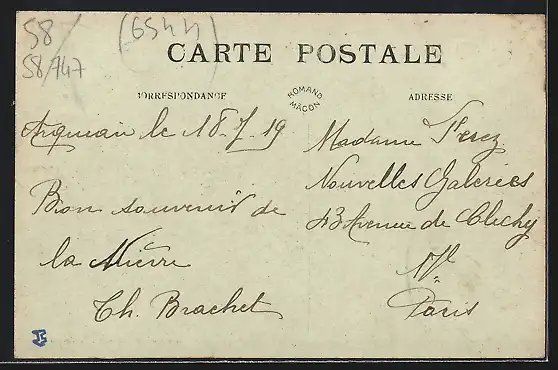 58
58/747
(6544)
CARTE POSTALE
CORRESPONDANCE
ROMAND
MACON
ADRESSE
Arquian le 18.7.19
Bon souvenir de
la Nièvre
Th. Brachet
Madame Perez
Nouvelles Galeries
43 Avenue de Clichy
17e
Paris